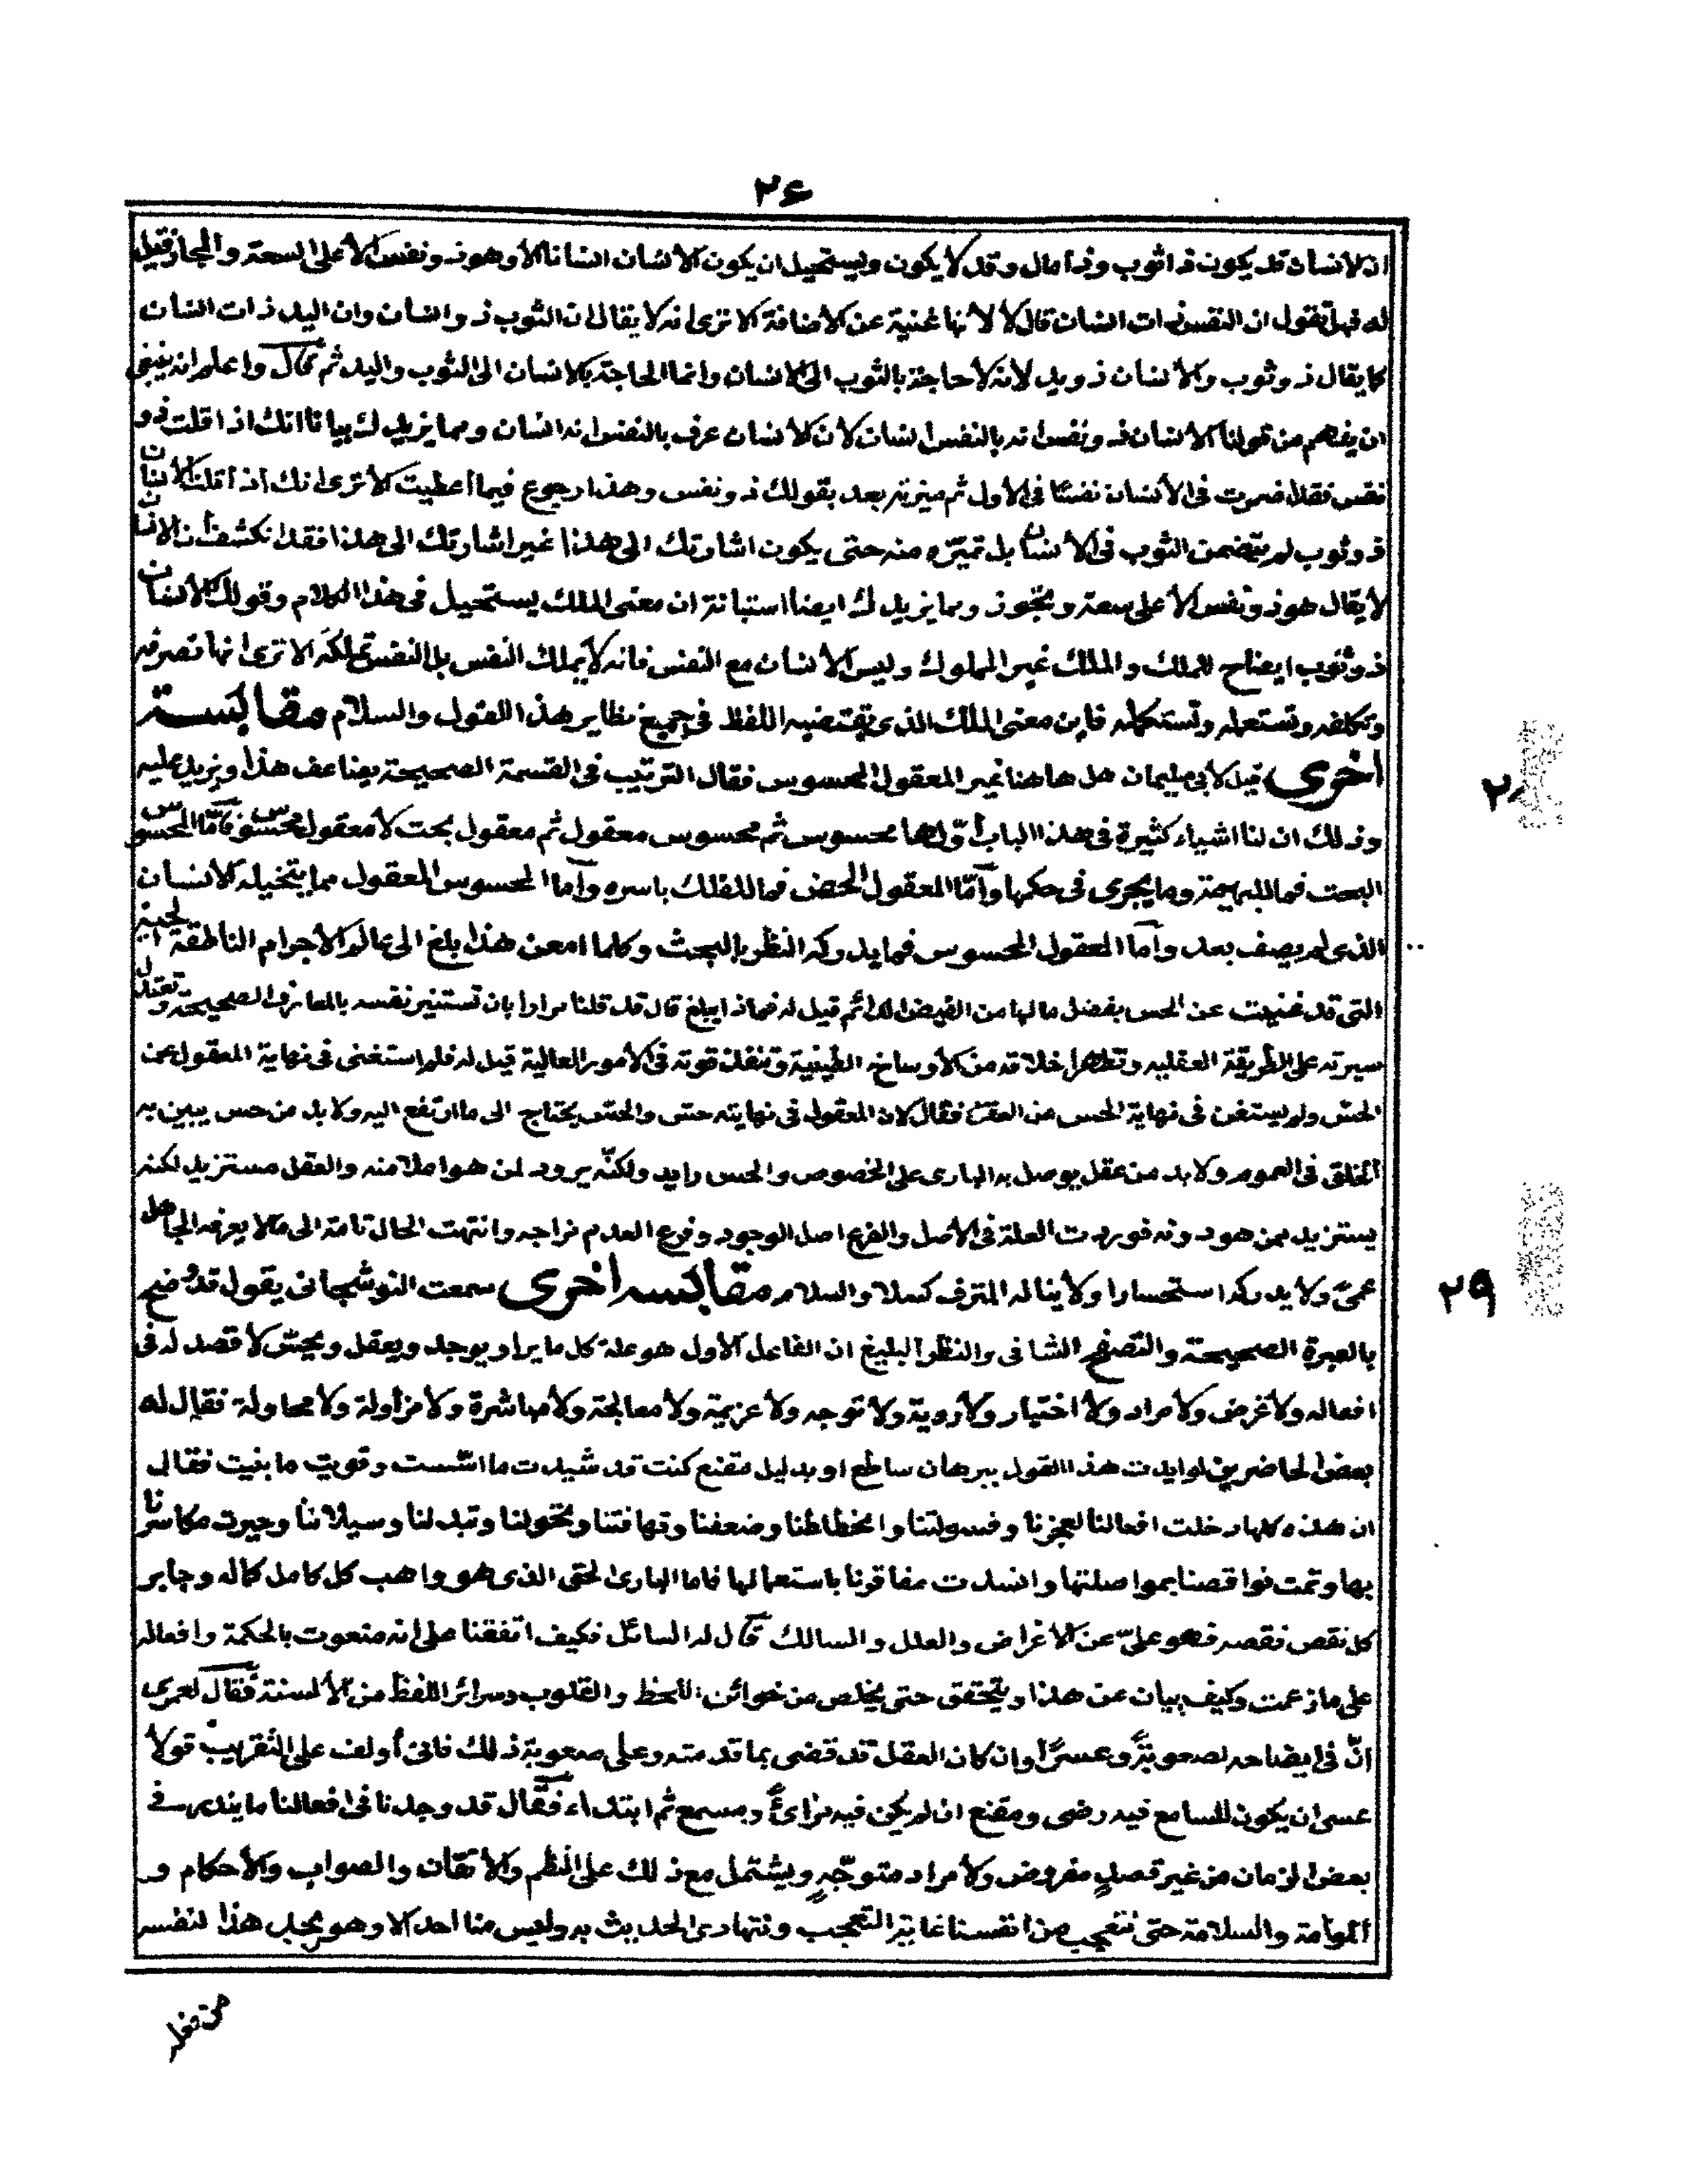 ٢٤
ان الانسان قد يكون ذا ثوب وذا مال وقد لا يكون ويستحيل ان يكون الانسان انسانا الا وهو ذو نفس الا على السعة والمجاز قيل
له فهل تقول ان النفس ذات انسان قال لا لانها غنية عن الاضافة الا ترى انه لا يقال ان الثوب ذو انسان وان اليد ذات انسان
كما يقال ذو ثوب والانسان ذو يد لانه لا حاجة بالثوب الى الانسان وانما الحاجة بالانسان الى الثوب واليد ثم قال واعلم انه ينبغي
ان يفهم من قولنا الانسان ذو نفس انه بالنفس انسان لان الانسان عرف بالنفس انه انسان ومما يزيدك بيانا انك اذا قلت ذو
نفس فقد اضمرت فى الانسان نفسًا فى الاول ثم ميزته بعد بقولك ذو نفس وهذا رجوع فيما اعطيت الا ترى انك اذا قلت الانسان
ذو ثوب لم يتضمن الثوب فى الانسان بل تميّزه منه حتى يكون اشارتك الى هذا غير اشارتك الى هذا فقد انكشف ان الانسان
لا يقال هو ذو نفس الا على سعة وتجوز ومما يزيدك ايضا استبانة ان معنى الملك يستحيل فى هذا الكلام وقولك الانسان
ذو ثوب ايضاح للملك والملك غير المملوك وليس الانسان مع النفس فانه لا يملك النفس بل النفس تملكه الا ترى انها تصرفه
وتكلفه وتستعمله وتستكمله فاين معنى الملك الذى يقتضيه اللفظ فى جميع نظاير هذا القول والسلام مقابسة
اخرى قيل لابى سليمان هل هاهنا غير المعقول المحسوس فقال الترتيب فى القسمة الصحيحة يضاعف هذا ويزيد عليه
وذلك ان لنا اشياء كثيرة فى هذا الباب اوّلها محسوس ثم محسوس معقول ثم معقول بحت لا معقول محسوس فامّا المحسوس
البحت فما للبهيمة وما يجرى فى حكمها وامّا المعقول المحض فما للفلك باسره واما المحسوس المعقول مما يتخيله الانسان
الذى لم يصف بعد واما المعقول المحسوس فما يدركه النظر بالبحث وكلما امعن هذا بلغ الى عالم الاجرام الناطقة
التى قد غنيت عن الحس بفضل مالها من الفيض الدائم قيل له فماذا يبلغ قال قد قلنا مرارا بان تستنير نفسه بالمعارف الصحيحة وتعتدل
سيرته على الطريقة العقليه وتطهر اخلاقه من الاوساخ الطينية وتنفذ قوته فى الامور العالية قيل له فلم استغنى فى نهاية المعقول عن
الحسّ ولم يستغن فى نهاية الحس عن العقل فقال لان المعقول فى نهايته حسّ والحسّ يحتاج الى ما ارتفع اليه ولا بد من حس يبين به
الخلق فى العموم ولا بد من عقل يوصل به البارى على الخصوص والحس رايد ولكنّه يرود لمن هو اعلا منه والعقل مستزيد لكنه
يستزيد ممن هو دونه فوردت العلة فى الاصل والفرع اصل الوجود وفرع العدم واجه وانتهت الحال تامة الى ما لا يعرفه الجاهل
عمىً ولا يدركه استحسارا ولا يناله المترف كسلا والسلام مقابسه اخرى سمعت النوشجانى يقول قد وضح
بالعبرة الصحيحة والتصفح الشافى والنظر البليغ ان الفاعل الاول هو علة كل ما يراد يوجد ويعقل ويحسّ لا قصد له فى
افعاله ولا غرض ولا مراد ولا اختيار ولا روية ولا توجه ولا عزيمة ولا معالجة ولا مباشرة ولا مزاولة ولا محاولة فقال له
بعض الحاضرين لو ايدت هذا القول ببرهان ساطع او بدليل مقنع كنت قد شيدت ما اسّست وقويت ما بنيت فقال
ان هذه كلها دخلت افعالنا لعجزنا وفسولتنا وانحطاطنا وضعفنا وتهافتنا وتحولنا وتبدلنا وسيلاننا وجبرت مكاسرنا
بها وتمت نواقصنا بمواصلتها وانسدت مفاقرنا باستعمالها فاما البارى الحق الذى هو واهب كل كامل كماله وجابر
كل نقص نقصه فهو علىّ عن الاغراض والعلل والمسالك قال له السائل فكيف اتفقنا على انه منعوت بالحكمة وافعاله
على ما زعمت وكيف بيان عن هذا ويتحقق حتى يخلص من خوائن اللحظ والقلوب وسرائر اللفظ من الالسنة فقال لعمرى
انّ فى ايضاحه لصعوبةً وعسرًا وان كان العقل قد قضى بما قدمته وعلى صعوبة ذلك فانى أولف على التقريب قولا
عسى ان يكون للسامع فيه رضى ومقنع ان لم يكن فيه مراىً ومسمع ثم ابتداء فقال قد وجدنا فى افعالنا ما يندر فى
بعض الزمان من غير قصدٍ مفروض ولا مراد متوجّهٍ ويشتمل مع ذلك على النظم والاتقان والصواب والاحكام و
الموامة والسلامة حتى نتعجب من انفسنا غاية التعجب ونتهادى الحديث به وليس منا احد الا وهو يجد هذا لنفسه
٢٩